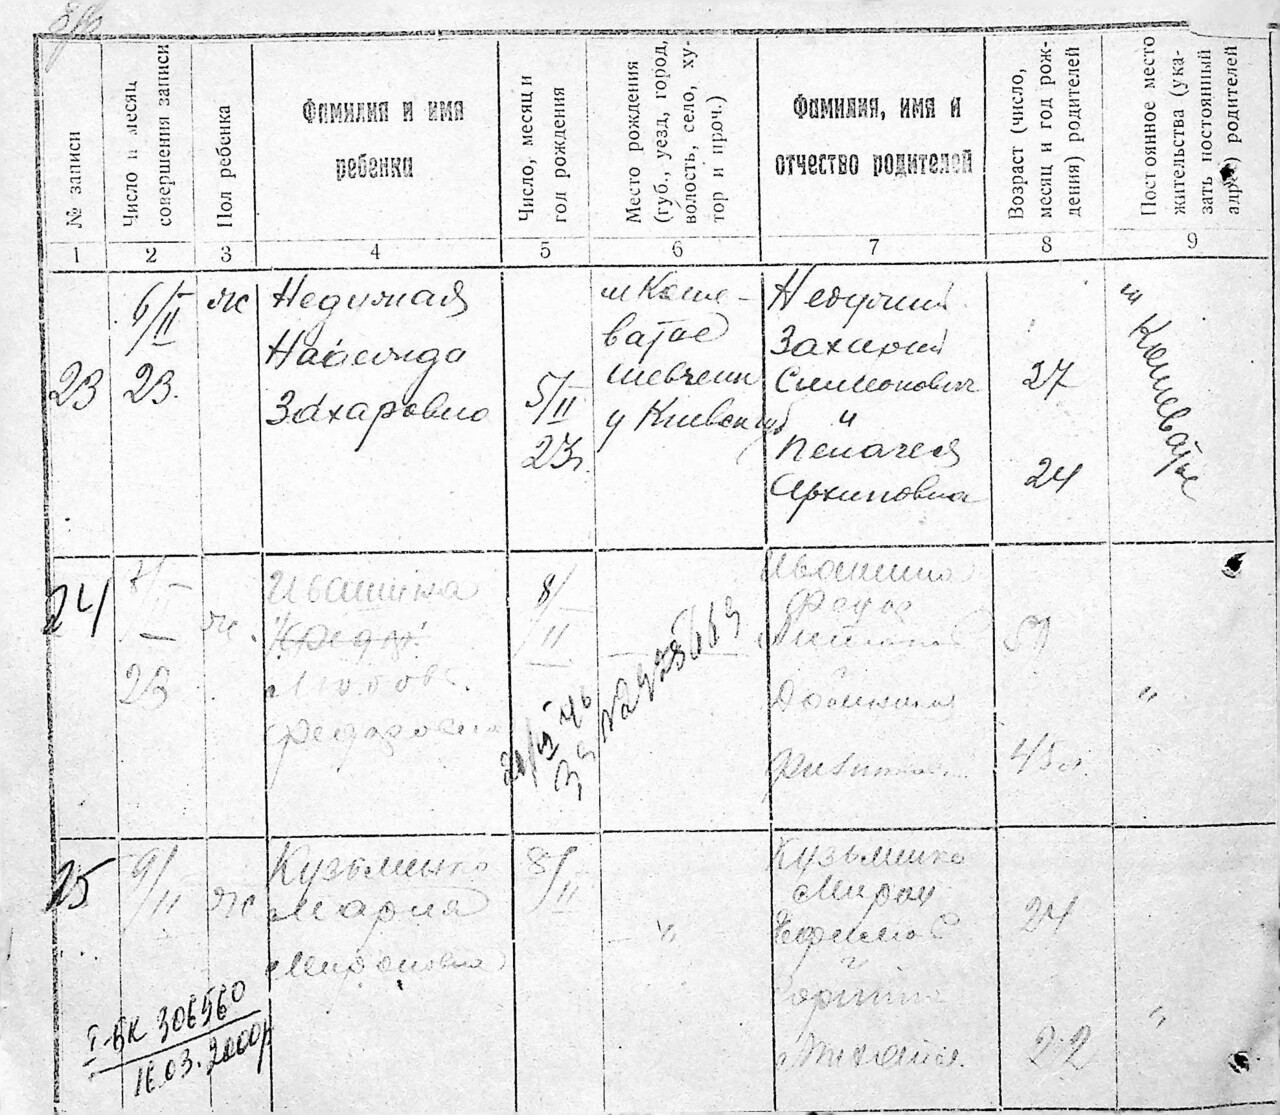 № записи
Число и месяц
совершения записи
Пол ребенка
Фамилия и имя
ребенка
Число, месяц и
год рождения
Место рождения
(губ., уезд, город,
волость, село, ху-
тор и проч.)
Фамилия, имя и
отчество родителей
Возраст (число,
месяц и год рож-
дения) родителей
Постоянное место
жительства (ука-
зать постоянный
адрес) родителей
1 2 3 4 5 6 7 8 9
23
6/II
23
ж
Недумая
Надежда
Захаровна
5/II
23г.
м Коше-
ватое
Шевченк
у Киевск губ
Недумий
Захарий
Симеонович
и
Пелагея
Архиповна
27
24
м Кошеватое
24
7/II
23
ж.
Ивашина
Любовь
Федоровна
8/II
Ивашина
Федор
и
45 л.
"
25
9/II
ж
Кузьменко
Мария
Мироновна
8/II
"
Кузьменко
Мирон
и
24
22
"
I-БК 306560
16.03.2000р